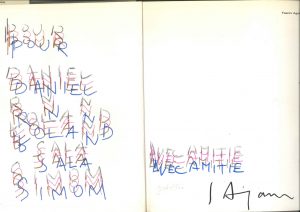 POUR
DANIEL
ROLAND
SALA
SIMOM
AVEC AMITIE
Agam